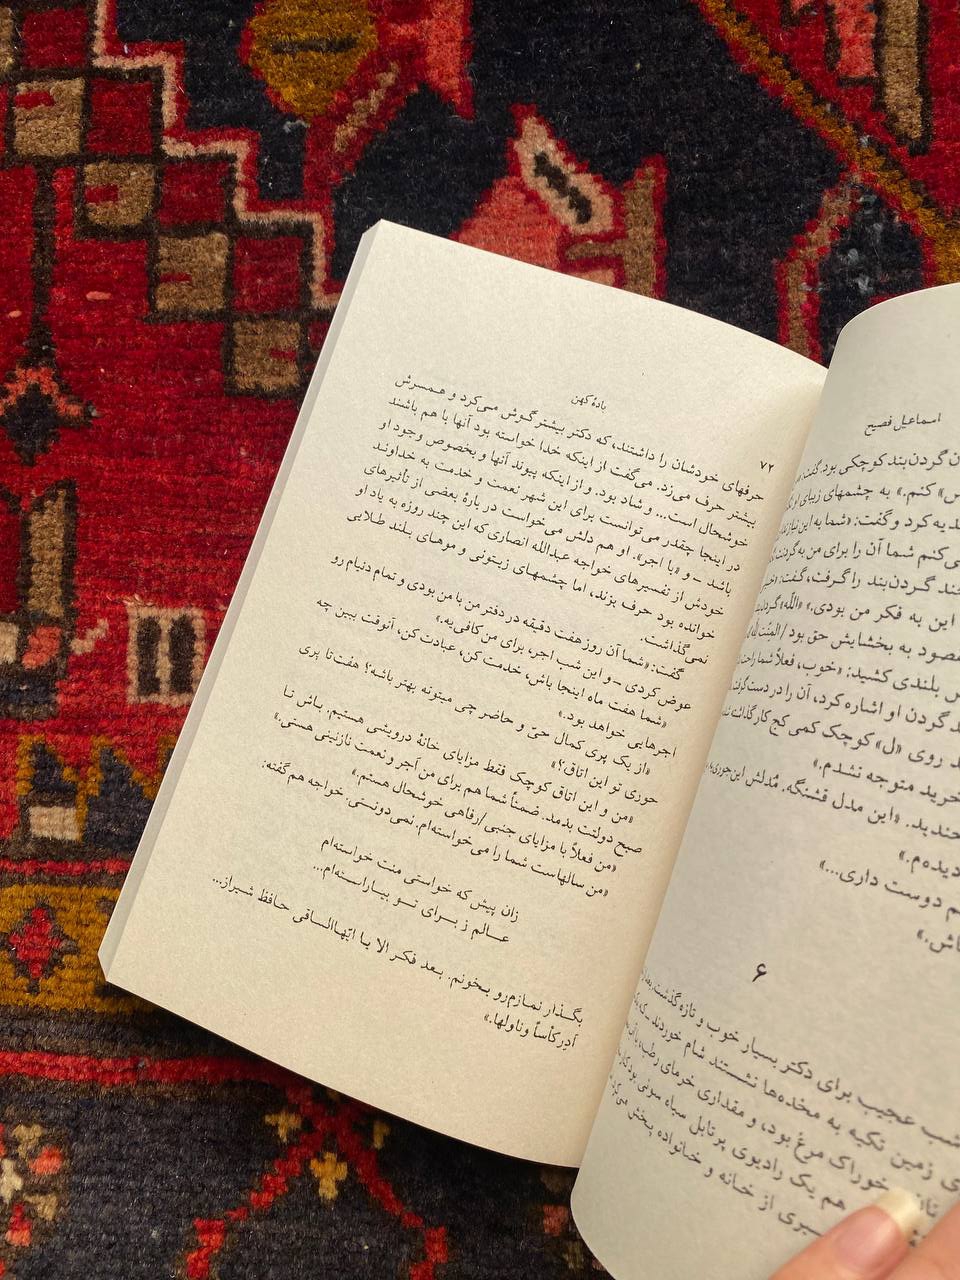 ۷۲
بادهٔ کهن
حرفهای خودشان را داشتند، که دکتر بیشتر گوش می‌کرد و همسرش
بیشتر حرف می‌زد. می‌گفت از اینکه خدا خواسته بود آنها با هم باشند
خوشحال است... و شاد بود. و از اینکه پیوند آنها و بخصوص وجود او
در اینجا چقدر می‌توانست برای این شهر نعمت و خدمت به خداوند
باشد – و «با اجر». او هم دلش می‌خواست در بارهٔ بعضی از تأثیرهای
خودش از تفسیرهای خواجه عبدالله انصاری که این چند روزه به یاد او
خوانده بود حرف بزند، اما چشمهای زیتونی و موهای بلند طلایی
نمی‌گذاشت.
گفت: «شما آن روز هفت دقیقه در دفتر من با من بودی و تمام دنیام رو
عوض کردی – و این شب اجر، برای من کافی‌یه.»
«شما هفت ماه اینجا باش، خدمت کن، عبادت کن، آنوقت ببین چه
اجرهایی خواهد بود.»
«از یک پری کمال حیّ و حاضر چی میتونه بهتر باشه؟ هفت‌تا پری
حوزی تو این اتاق؟»
«من و این اتاق کوچک فقط مزایای خانهٔ درویشی هستیم. باش تا
صبح دولتت بدمد. ضمناً شما هم برای من آجر و نعمت نازنینی هستی.»
«من فعلاً با مزایای جنبی/رفاهی خوشحال هستم.»
«من سالهاست شما را می‌خواسته‌ام. نمی‌دونستی. خواجه هم گفته:
زان پیش که خواستی منت خواسته‌ام
عالم ز برای تو بیاراسته‌ام...
بگذار نمازم‌رو بخونم. بعد فکر الا یا ایّهاالساقی حافظ شیراز...
اَدِر کأساً و ناولها.»
اسماعیل فصیح
گردن‌بند کوچکی بود. گفت:
کنم.» به چشمهای زیبای او
کرد و گفت: «شما به این نیاز
کنم شما آن را برای من به گردنت
گردن‌بند را گرفت، گفت:
این به فکر من بودی.» «اللّه»
به بخشایش حق بود
بلندی کشید: «خوب، فعلاً شما
گردن او اشاره کرد، آن را در دست
روی «ل» کوچک کمی کج کار
متوجه نشدم.»
«این مدل قشنگه. مُدلش این جوری
دیده‌م.»
دوست داری...»
باش.»
۶
شب عجیب برای دکتر بسیار خوب و تازه گذشت.
زمین تکیه به مخده‌ها نشستند شام خوردند
خوراک مرغ بود، و مقداری خرمای رطب
هم یک رادیوی پرتابل سیاه سونی بود
از خانه و خانواده پخش می‌کرد